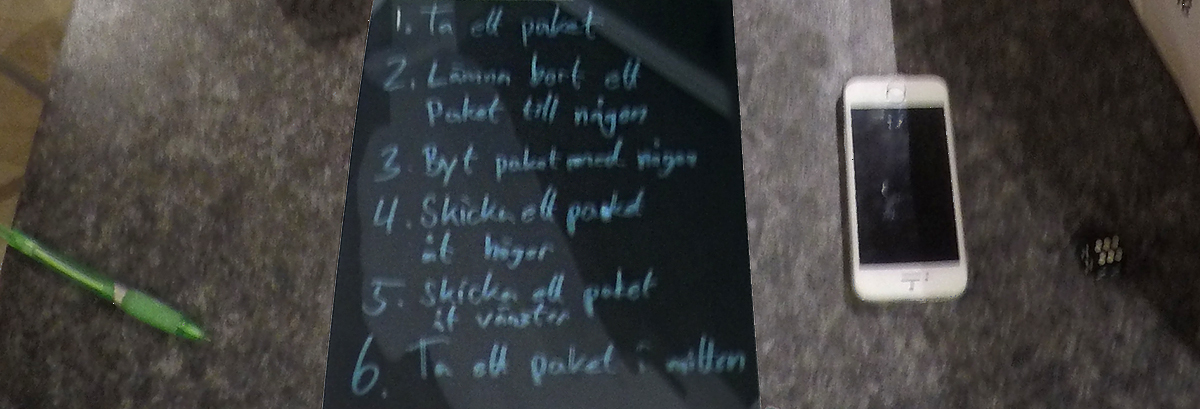 1. Ta ett paket
2. Lämna bort ett
Paket till någon
3. Byt paket med någon
4. Skicka ett paket
åt höger
5. Skicka ett paket
åt vänster
6. Ta ett paket i mitten